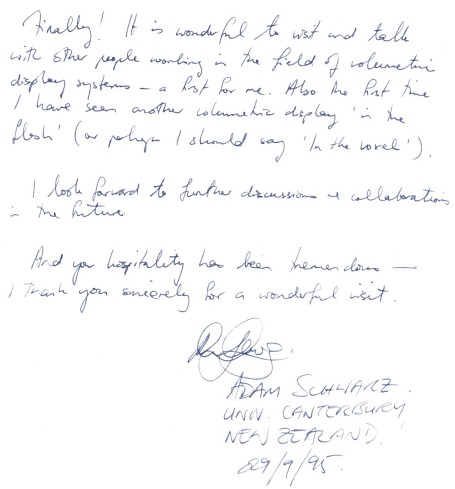 Finally! It is wonderful to visit and talk
with other people working in the field of volumetric
display systems — a first for me. Also the first time
I have seen another volumetric display 'in the
flesh' (or perhaps I should say 'In the voxel').
I look forward to further discussions & collaborations
in the future
And your hospitality has been tremendous —
I thank you sincerely for a wonderful visit.
ADAM SCHWARZ.
UNIV. CANTERBURY
NEW ZEALAND.
29/9/95.